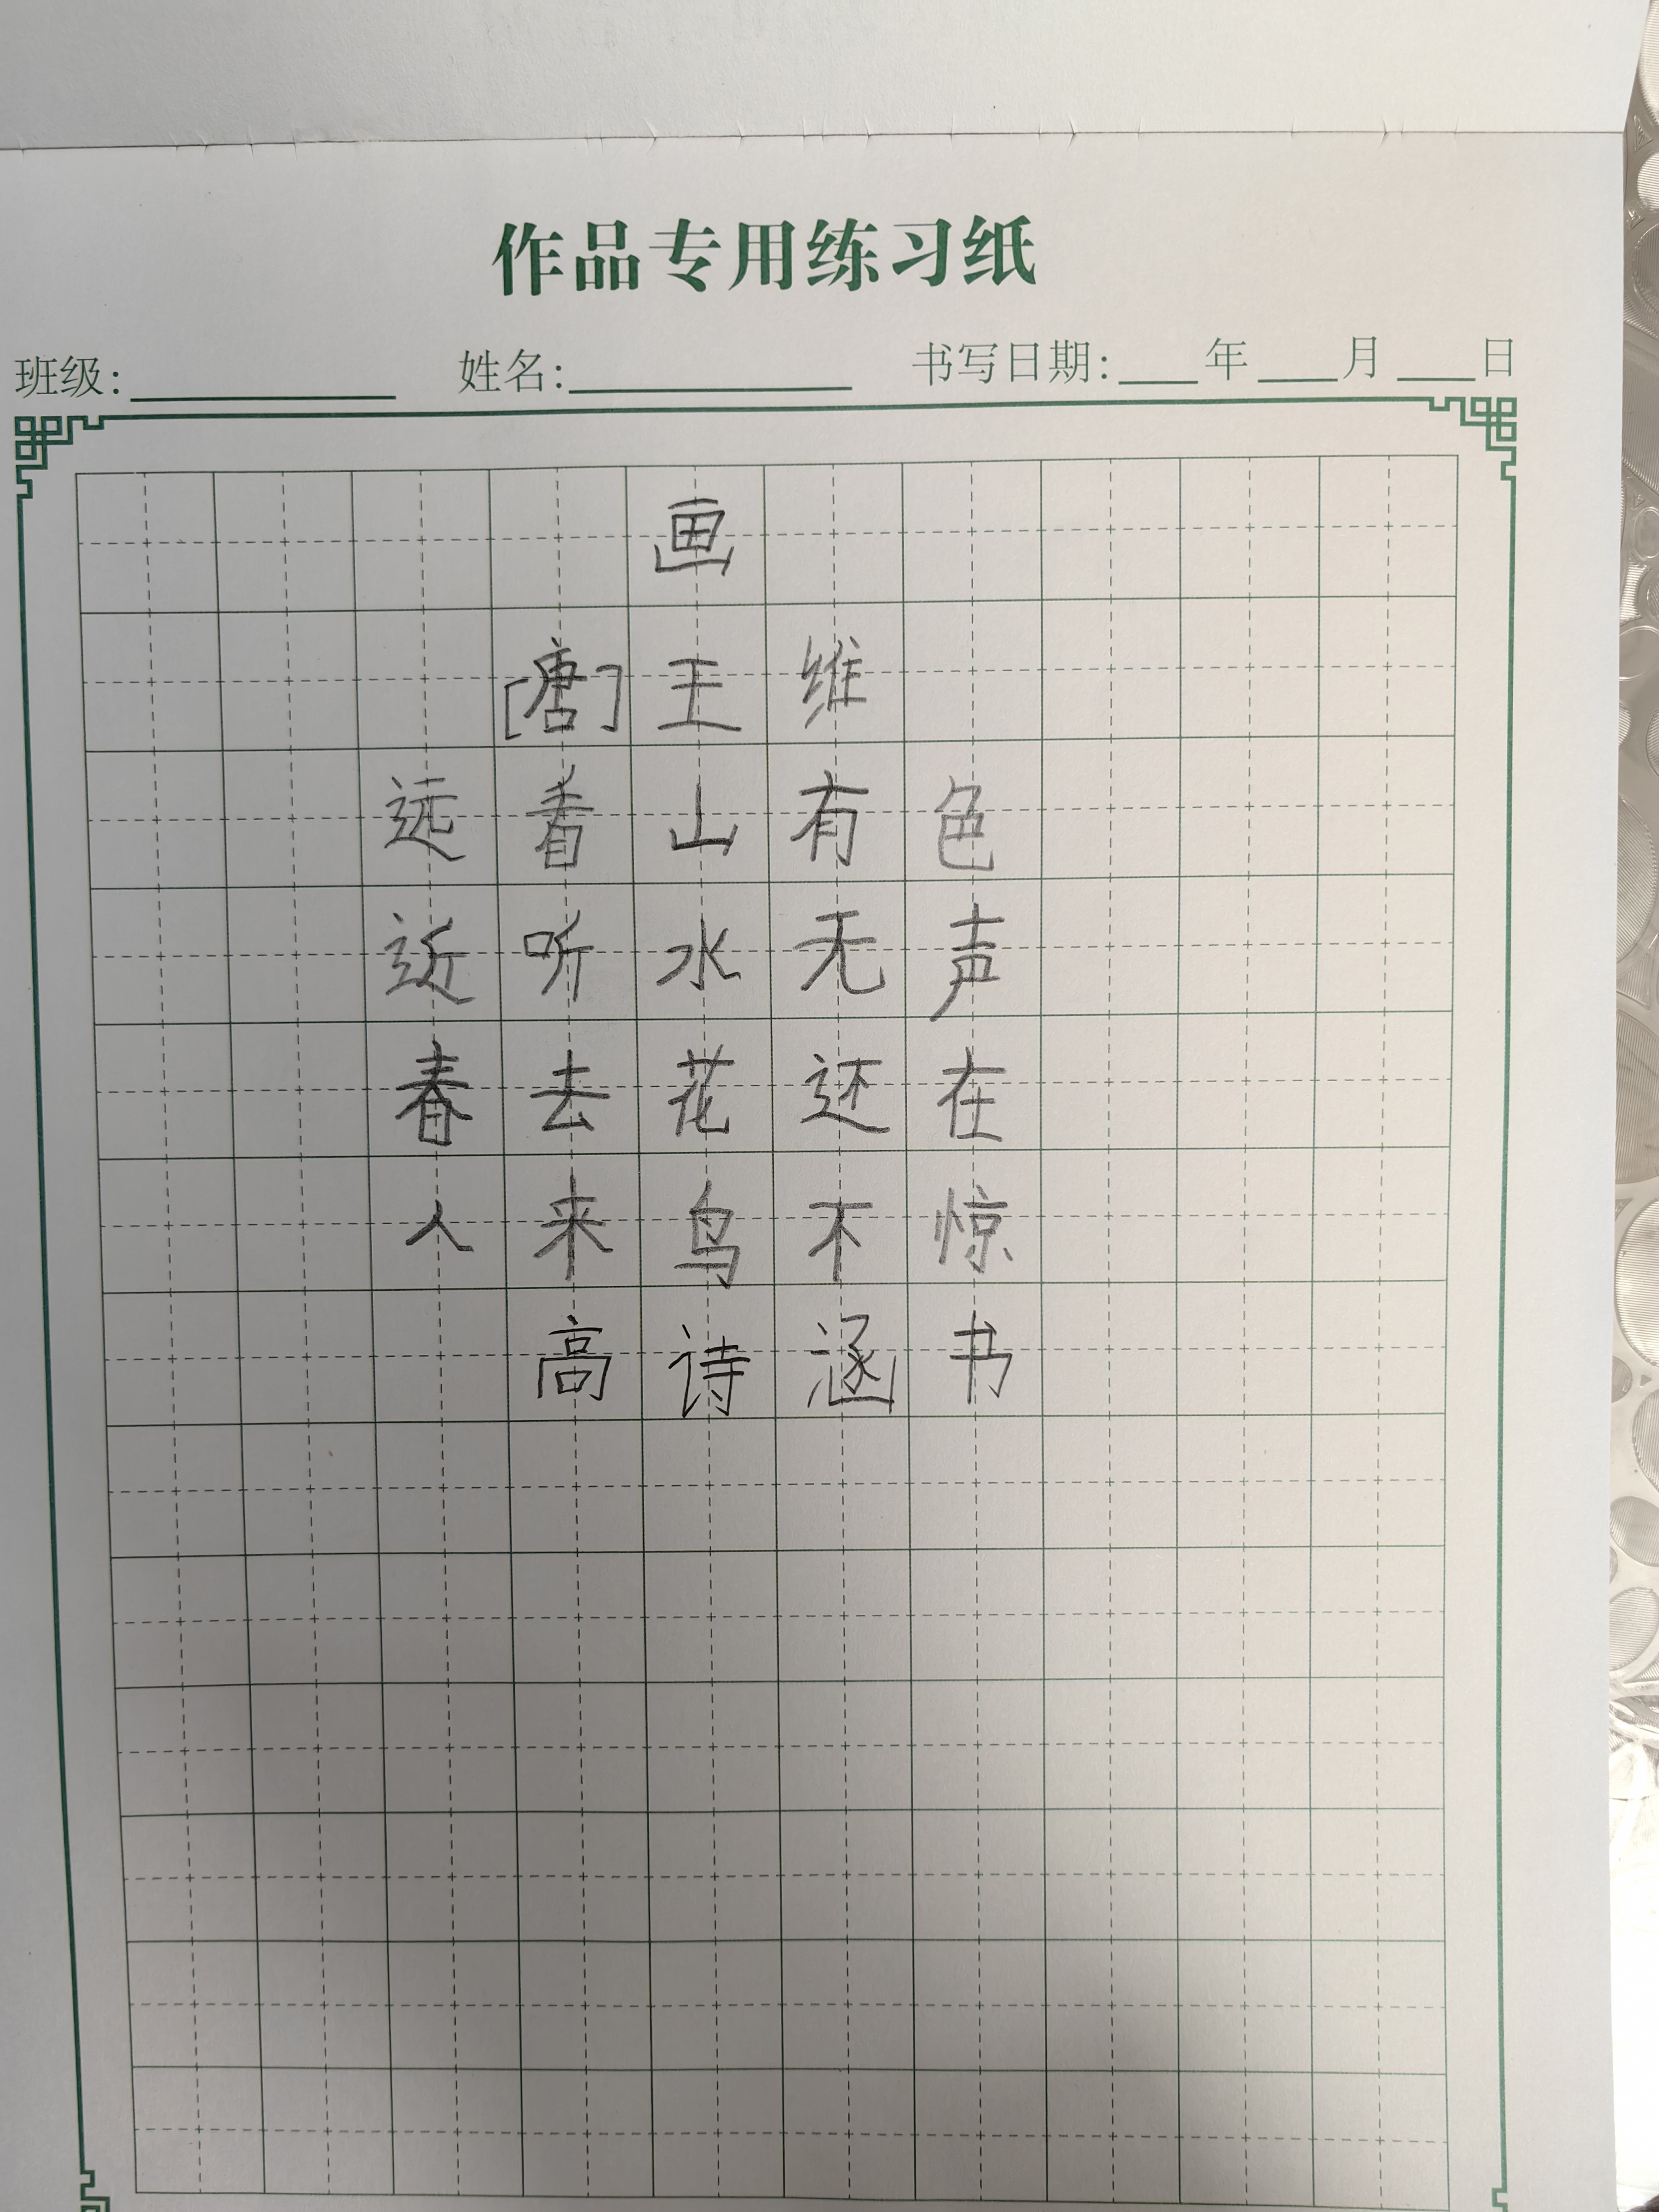 作品专用练习纸
班级: 姓名: 书写日期: 年 月 日
画
[唐]王维
远看山有色
近听水无声
春去花还在
人来鸟不惊
高诗涵书